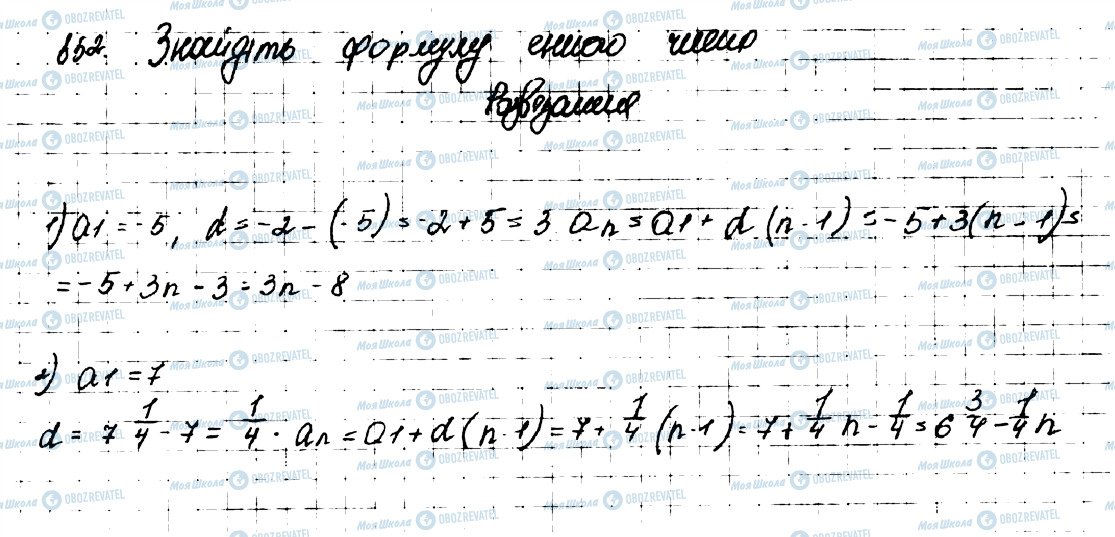 852. Знайдіть формулу енного члена
Розв'язання
1) a1 = -5, d = -2 - (-5) = -2 + 5 = 3 an = a1 + d (n - 1) = -5 + 3(n - 1) =
= -5 + 3n - 3 = 3n - 8
2) a1 = 7
d = 7 1/4 - 7 = 1/4 · an = a1 + d (n - 1) = 7 + 1/4 (n - 1) = 7 + 1/4 n - 1/4 = 6 3/4 - 1/4 n